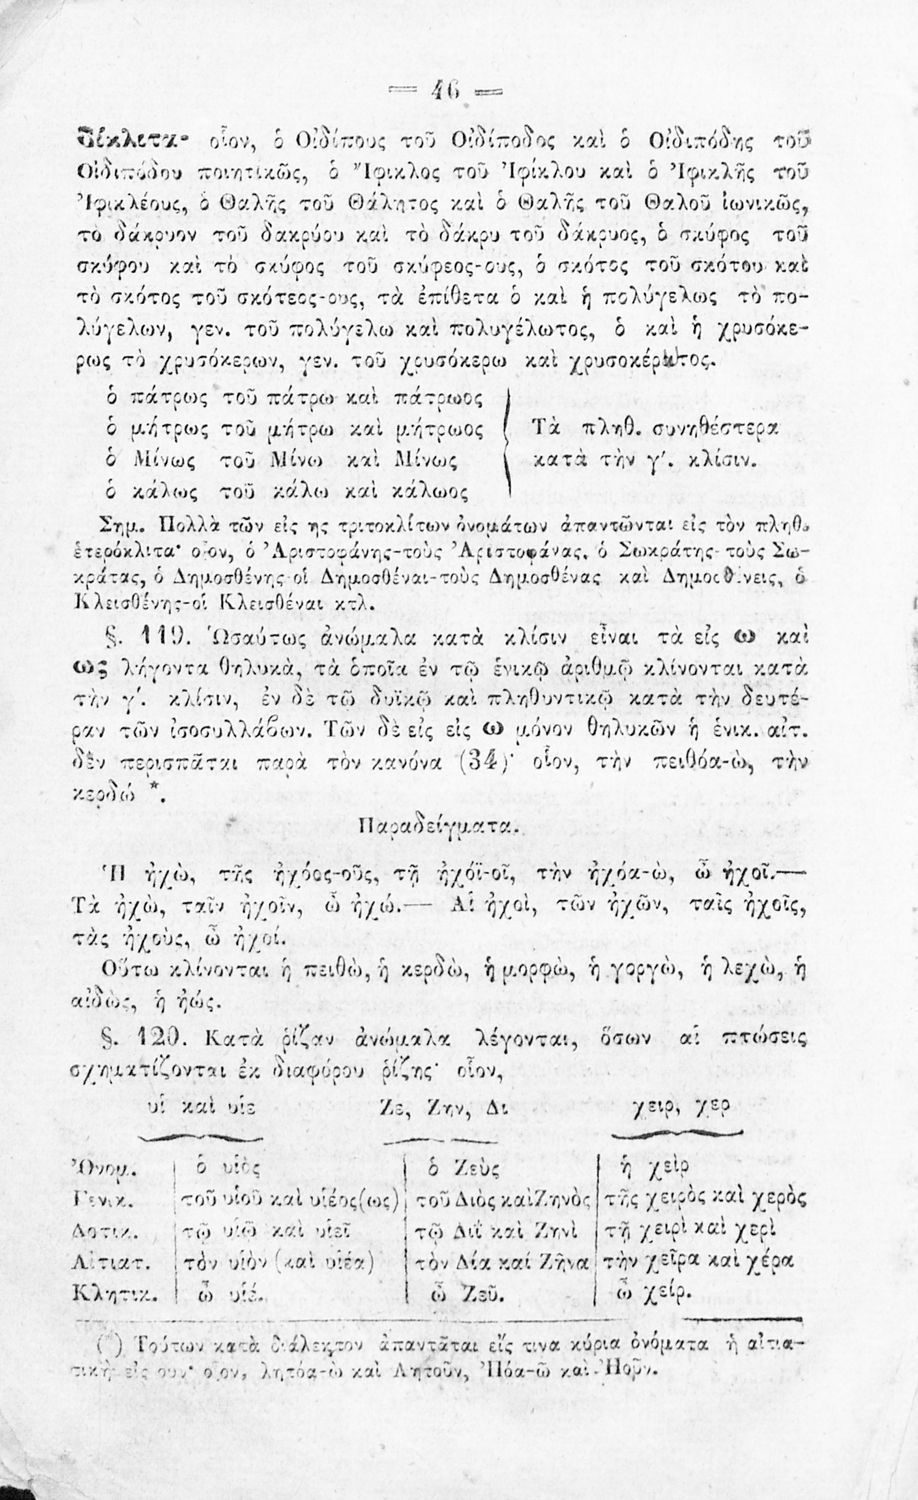 — 46 —
δέκλιτα· οἷον, ὁ Οἰδίπους τοῦ Οἰδίποδος καὶ ὁ Οἰδιπόδης τοῦ
Οἰδιπόδου ποιητικῶς, ὁ Ἴφικλος τοῦ Ἰφίκλου καὶ ὁ Ἰφικλῆς τοῦ
Ἰφικλέους, ὁ Θαλῆς τοῦ Θάλητος καὶ ὁ Θαλῆς τοῦ Θαλοῦ ἰωνικῶς,
τὸ δάκρυον τοῦ δακρύου καὶ τὸ δάκρυ τοῦ δάκρυος, ὁ σκύφος τοῦ
σκύφου καὶ τὸ σκύφος τοῦ σκύφεος-ους, ὁ σκότος τοῦ σκότου καὶ
τὸ σκότος τοῦ σκότεος-ους, τὰ ἐπίθετα ὁ καὶ ἡ πολύγελως τὸ πο-
λύγελων, γεν. τοῦ πολύγελω καὶ πολυγέλωτος, ὁ καὶ ἡ χρυσόκε-
ρως τὸ χρυσόκερων, γεν. τοῦ χρυσόκερω καὶ χρυσοκέρωτος.
ὁ πάτρως τοῦ πάτρω καὶ πάτρωος
ὁ μήτρως τοῦ μήτρω καὶ μήτρωος Τὰ πληθ. συνηθέστερα
ὁ Μίνως τοῦ Μίνω καὶ Μίνως κατὰ τὴν γ΄. κλίσιν.
ὁ κάλως τοῦ κάλω καὶ κάλωος
Σημ. Πολλὰ τῶν εἰς ης τριτοκλίτων ὀνομάτων ἀπαντῶνται εἰς τὸν πληθ.
ἑτερόκλιτα· οἷον, ὁ Ἀριστοφάνης-τοὺς Ἀριστοφάνας, ὁ Σωκράτης-τοὺς Σω-
κράτας, ὁ Δημοσθένης οἱ Δημοσθέναι-τοὺς Δημοσθένας καὶ Δημοσθένεις, ὁ
Κλεισθένης-οἱ Κλεισθέναι κτλ.
§. 119. Ὡσαύτως ἀνώμαλα κατὰ κλίσιν εἶναι τὰ εἰς ω καὶ
ως λήγοντα θηλυκὰ, τὰ ὁποῖα ἐν τῷ ἑνικῷ ἀριθμῷ κλίνονται κατὰ
τὴν γ΄. κλίσιν, ἐν δὲ τῷ δυϊκῷ καὶ πληθυντικῷ κατὰ τὴν δευτέ-
ραν τῶν ἰσοσυλλάβων. Τῶν δὲ εἰς εἰς ω μόνον θηλυκῶν ἡ ἑνικ. αἰτ.
δὲν περισπᾶται παρὰ τὸν κανόνα (34)· οἷον, τὴν πειθόα-ὼ, τὴν
κερδώ *.
Παραδείγματα.
Ἡ ἠχὼ, τῆς ἠχόος-οῦς, τῇ ἠχόϊ-οῖ, τὴν ἠχόα-ὼ, ὦ ἠχοῖ.—
Τὰ ἠχὼ, ταῖν ἠχοῖν, ὦ ἠχώ.— Αἱ ἠχοὶ, τῶν ἠχῶν, ταῖς ἠχοῖς,
τὰς ἠχοὺς, ὦ ἠχοί.
Οὕτω κλίνονται ἡ πειθὼ, ἡ κερδὼ, ἡ μορφὼ, ἡ γοργὼ, ἡ λεχὼ, ἡ
αἰδὼς, ἡ ἠώς.
§. 120. Κατὰ ῥίζαν ἀνώμαλα λέγονται, ὅσων αἱ πτώσεις
σχηματίζονται ἐκ διαφόρου ῥίζης· οἷον,
υἱ καὶ υἱε Ζε, Ζην, Δι χειρ, χερ
Ὀνομ. ὁ υἱὸς ὁ Ζεὺς ἡ χεὶρ
Γενικ. τοῦ υἱοῦ καὶ υἱέος(ως) τοῦ Διὸς καὶ Ζηνὸς τῆς χειρὸς καὶ χερὸς
Δοτικ. τῷ υἱῷ καὶ υἱεῖ τῷ Διῒ καὶ Ζηνὶ τῇ χειρὶ καὶ χερὶ
Αἰτιατ. τὸν υἱὸν (καὶ υἱέα) τὸν Δία καί Ζῆνα τὴν χεῖρα καὶ χέρα
Κλητικ. ὦ υἱέ. ὦ Ζεῦ. ὦ χείρ.
(*) Τούτων κατὰ διάλεκτον ἀπαντᾶται εἴς τινα κύρια ὀνόματα ἡ αἰτια-
τικὴ εἰς ουν· οἷον, λητόα-ὼ καὶ Λητοῦν, Ἠόα-ῶ καὶ Ἠοῦν.